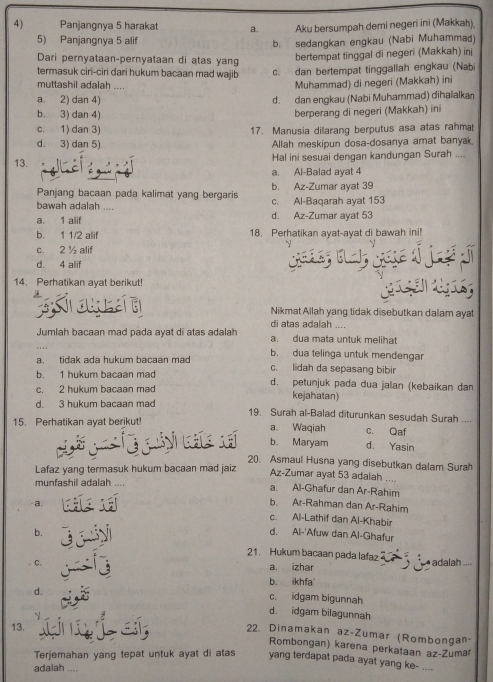 4) Panjangnya 5 harakat
5) Panjangnya 5 alif
Dari pernyataan-pernyataan di atas yang
termasuk ciri-ciri dari hukum bacaan mad wajib
muttashil adalah ....
a. 2) dan 4)
b. 3) dan 4)
c. 1) dan 3)
d. 3) dan 5)
13. لَهُمْ سُوْءُ أَعْمَالِهِمْ
Panjang bacaan pada kalimat yang bergaris
bawah adalah ....
a. 1 alif
b. 1 1/2 alif
c. 2 ½ alif
d. 4 alif
14. Perhatikan ayat berikut!
إِنَّآ أَعْطَيْنٰكَ الْكَوْثَرَ
Jumlah bacaan mad pada ayat di atas adalah
....
a. tidak ada hukum bacaan mad
b. 1 hukum bacaan mad
c. 2 hukum bacaan mad
d. 3 hukum bacaan mad
15. Perhatikan ayat berikut!
لَقَدْ خَلَقْنَا الْاِنْسٰنَ فِيْٓ أَحْسَنِ تَقْوِيْمٍ
Lafaz yang termasuk hukum bacaan mad jaiz
munfashil adalah ....
a. لَقَدْ خَلَقْنَا
b. الْاِنْسٰنَ فِيْٓ
c. فِيْٓ أَحْسَنِ
d. تَقْوِيْمٍ
13. وَاَنْتَ حِلٌّۢ بِهٰذَا الْبَلَدِۙ
Terjemahan yang tepat untuk ayat di atas
adalah ....
a. Aku bersumpah demi negeri ini (Makkah),
b. sedangkan engkau (Nabi Muhammad)
bertempat tinggal di negeri (Makkah) ini
c. dan bertempat tinggallah engkau (Nabi
Muhammad) di negeri (Makkah) ini
d. dan engkau (Nabi Muhammad) dihalalkan
berperang di negeri (Makkah) ini
17. Manusia dilarang berputus asa atas rahmat
Allah meskipun dosa-dosanya amat banyak.
Hal ini sesuai dengan kandungan Surah ....
a. Al-Balad ayat 4
b. Az-Zumar ayat 39
c. Al-Baqarah ayat 153
d. Az-Zumar ayat 53
18. Perhatikan ayat-ayat di bawah ini!
اَلَمْ نَجْعَلْ لَّهٗ عَيْنَيْنِۙ وَلِسَانًا وَّشَفَتَيْنِۙ
وَهَدَيْنٰهُ النَّجْدَيْنِۙ
Nikmat Allah yang tidak disebutkan dalam ayat
di atas adalah ....
a. dua mata untuk melihat
b. dua telinga untuk mendengar
c. lidah da sepasang bibir
d. petunjuk pada dua jalan (kebaikan dan
kejahatan)
19. Surah al-Balad diturunkan sesudah Surah ....
a. Waqiah c. Qaf
b. Maryam d. Yasin
20. Asmaul Husna yang disebutkan dalam Surah
Az-Zumar ayat 53 adalah ....
a. Al-Ghafur dan Ar-Rahim
b. Ar-Rahman dan Ar-Rahim
c. Al-Lathif dan Al-Khabir
d. Al-'Afuw dan Al-Ghafur
21. Hukum bacaan pada lafaz مِنْ رَّحْمَةِ adalah ....
a. izhar
b. ikhfa'
c. idgam bigunnah
d. idgam bilagunnah
22. Dinamakan az-Zumar (Rombongan-
Rombongan) karena perkataan az-Zumar
yang terdapat pada ayat yang ke- ....